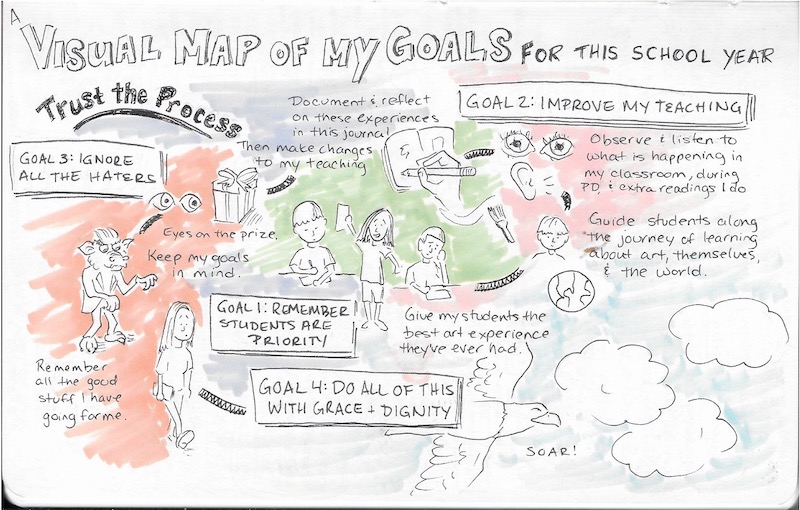 A
VISUAL MAP OF MY GOALS FOR THIS SCHOOL YEAR
Trust the Process
Document & reflect
on these experiences
in this journal.
Then make changes
to my teaching
GOAL 2: IMPROVE MY TEACHING
Observe & listen to
what is happening in
my classroom, during
PD, & extra readings I do
Guide students along
the journey of learning
about art, themselves,
& the world.
GOAL 3: IGNORE
ALL THE HATERS
Eyes on the prize.
Keep my goals
in mind.
GOAL 1: REMEMBER
STUDENTS ARE
PRIORITY
Give my students the
best art experience
they've ever had.
Remember
all the good
stuff I have
going for me.
GOAL 4: DO ALL OF THIS
WITH GRACE + DIGNITY
SOAR!